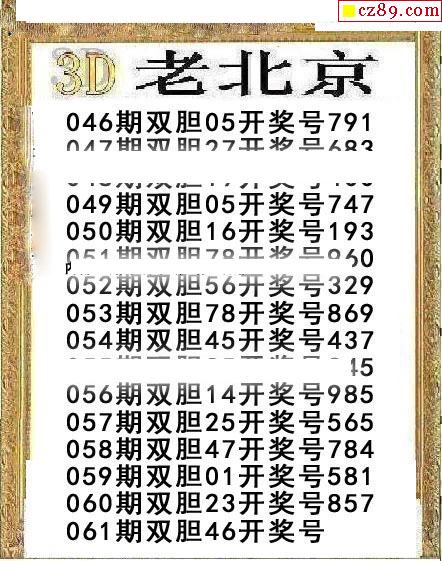 cz89.com
3D 老北京
046期双胆05开奖号791
047期双胆27开奖号683
049期双胆05开奖号747
050期双胆16开奖号193
051期双胆78开奖号960
052期双胆56开奖号329
053期双胆78开奖号869
054期双胆45开奖号437
45
056期双胆14开奖号985
057期双胆25开奖号565
058期双胆47开奖号784
059期双胆01开奖号581
060期双胆23开奖号857
061期双胆46开奖号